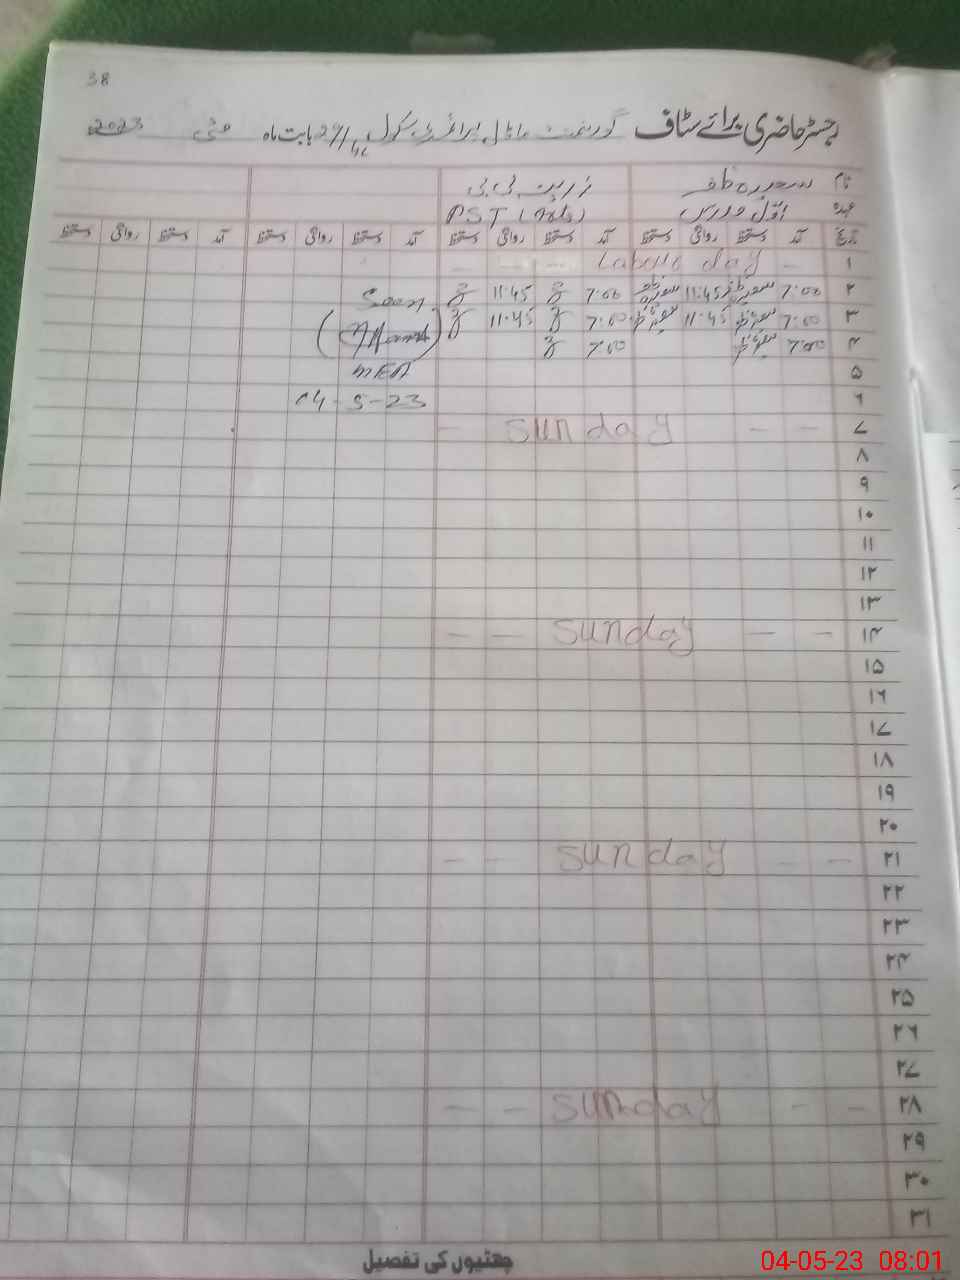 38
رجسٹر حاضری برائے سٹاف گورنمنٹ ماڈل پرائمری سکول بابت ماہ مئی 2023
نام سعدیہ ظفر زرینہ بی بی
عہدہ اوّل مدرس PST
تاریخ آمد دستخط روانگی دستخط آمد دستخط روانگی دستخط آمد دستخط روانگی دستخط آمد دستخط روانگی دستخط
۱ – Labour day – – –
۲ 7:00 11:45 7:00 11:45 Seen
۳ 7:00 11:45 7:00 11:45
۴ 7:00 7:00
۵ MEA
۶ 04-5-23
۷ – – sunday –
۸
۹
۱۰
۱۱
۱۲
۱۳
۱۴ – – sunday – –
۱۵
۱۶
۱۷
۱۸
۱۹
۲۰
۲۱ – – sunday – –
۲۲
۲۳
۲۴
۲۵
۲۶
۲۷
۲۸ – – sunday – –
۲۹
۳۰
۳۱
چھٹیوں کی تفصیل
04-05-23 08:01